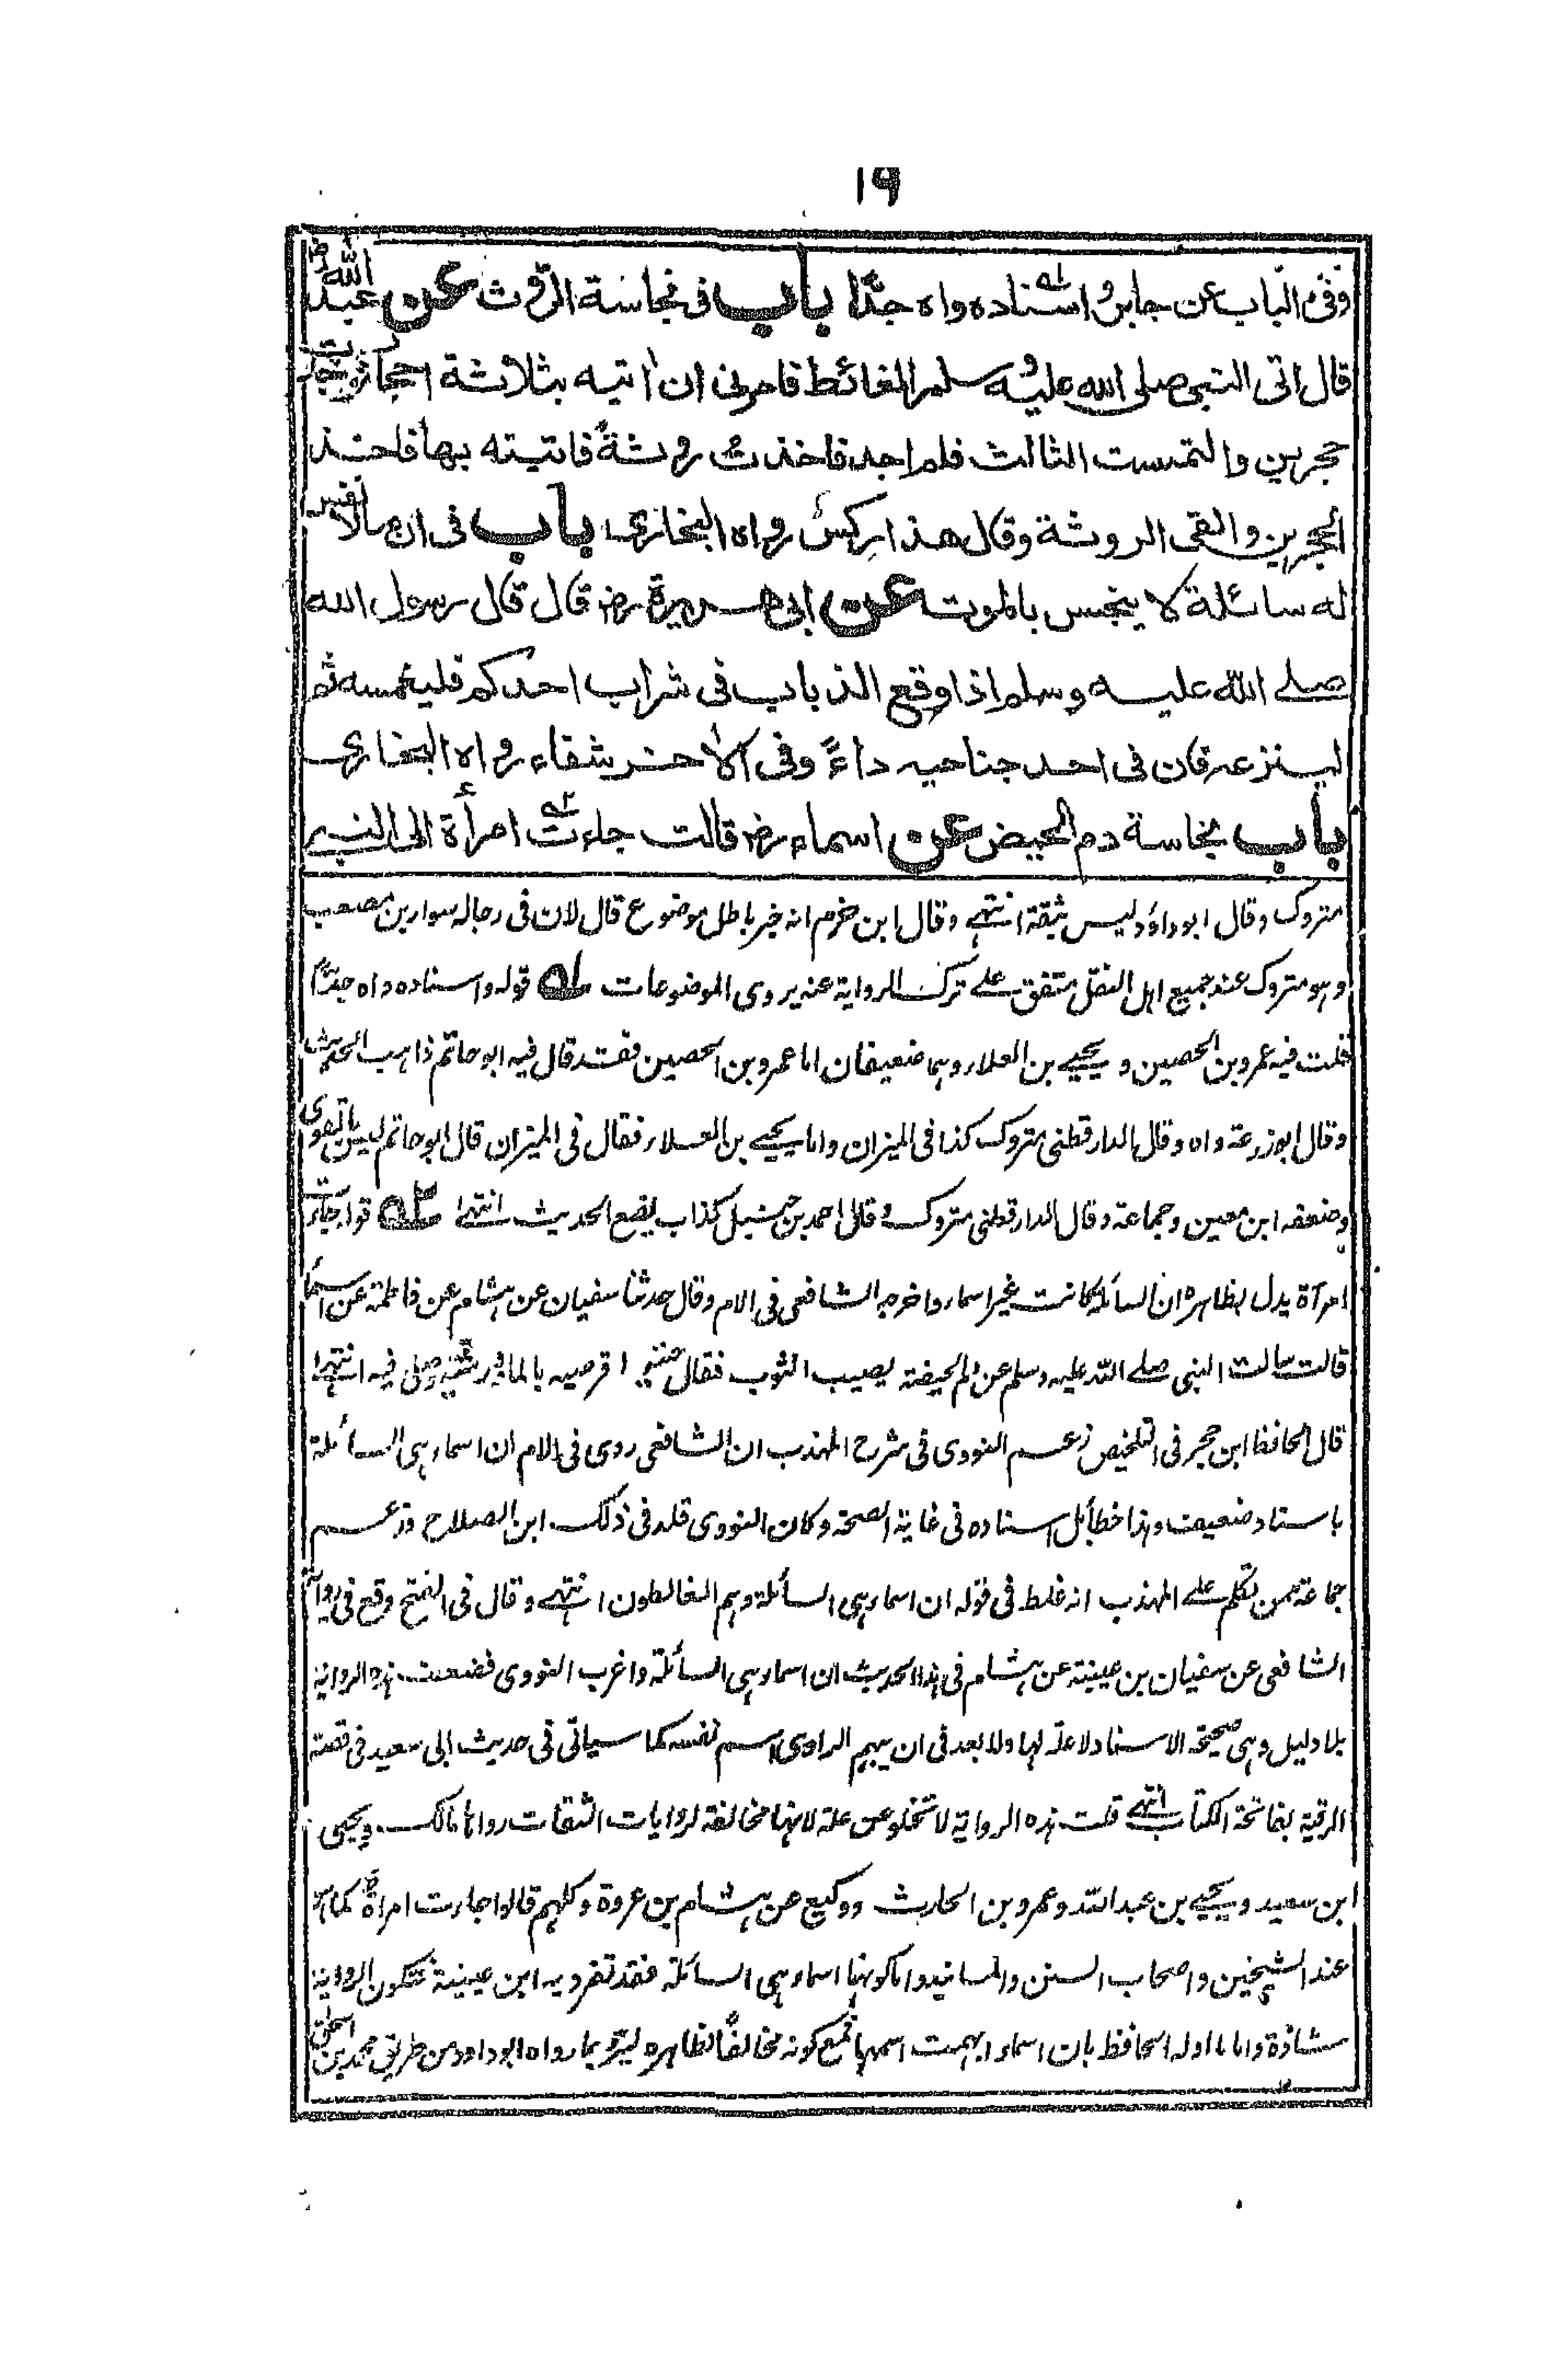 ١٦
وفي الباب عن جابر واسناده واه جدًّا باب فی نجاسة الروث عن عبد الله رض
قال اتی النبی صلی الله علیه وسلم الغائط فامرنی ان اٰتیه بثلاثة احجار فوجدت
حجرین والتمست الثالث فلم اجد فاخذت روثةً فاتیته بها فاخذ
الحجرین والقی الروثة وقال هذا رکس رواه البخاری باب فی ان ما لا نفس
له سائلة لا ینجس بالموت عن ابی هریرة رض قال قال رسول الله
صلے الله علیه وسلم اذا وقع الذباب فی شراب احدکم فلیغمسه ثم
لینزعه فان فی احد جناحیه داءً وفی الاٰخر شفاء رواه البخاری
باب نجاسة دم الحیض عن اسماء رض قالت جاءت ٢ه امرأة الی النبی
متروک وقال ابو داؤد لیس بثقة انتهے وقال ابن حزم انه خبر باطل موضوع قال لان فی رجاله سوار بن مصعب
وهو متروک عند جمیع اهل النقل متفق علے ترک الروایة عنه یروی الموضوعات ١ه قوله واسناده واه جدًّا
قلت فیه عمرو بن الحصین و یحیی بن العلاء وهما ضعیفان اما عمرو بن الحصین فقد قال فیه ابو حاتم ذاهب الحدیث
وقال ابو زرعة واه وقال الدارقطنی متروک کذا فی المیزان واما یحیی بن العلاء فقال فی المیزان قال ابو حاتم لیس بالقوی
وضعفه ابن معین وجماعة وقال الدارقطنی متروک وقال احمد بن حنبل کذاب یضع الحدیث انتهے ٢ه قوله جاءت
امرأة یدل بظاهره ان السائلة کانت غیر اسماء واخرجه الشافعی فی الام وقال حدثنا سفیان عن هشام عن فاطمة عن اسماء
قالت سالت النبی صلے الله علیه وسلم عن دم الحیضة یصیب الثوب فقال حتیه ثم اقرصیه بالماء ثم رشیه وصلی فیه انتهے
قال الحافظ ابن حجر فی التلخیص زعم النووی فی شرح المهذب ان الشافعی روی فی الام ان اسماء هی السائلة
باسناد ضعیف وهذا خطأ بل اسناده فی غایة الصحة وکان النووی قلد فی ذلک ابن الصلاح وزعم
جماعة ممن تکلم علے المهذب انه غلط فی قوله ان اسماء هی السائلة وهم الغالطون انتهے وقال فی الفتح وقع فی روایة
الشافعی عن سفیان بن عیینة عن هشام فی هذا الحدیث ان اسماء هی السائلة واغرب النووی فضعف هذه الروایة
بلا دلیل وهی صحیحة الاسناد لا علة لها ولا بعد فی ان یبهم الراوی اسم نفسه کما سیاتی فی حدیث ابی سعید فی قصة
الرقیة بفاتحة الکتاب انتهے قلت هذه الروایة لا تخلو عن علة لانها مخالفة لروایات الثقات رواها مالک ویحیی
ابن سعید ویحیی بن عبد الله وعمرو بن الحارث ووکیع عن هشام بن عروة وکلهم قالوا جاءت امرأة کما هو
عند الشیخین واصحاب السنن والمسانید واما کونها اسماء هی السائلة فقد تفرد به ابن عیینة فتکون الروایة
شاذة واما ما اوله الحافظ بان اسماء ابهمت اسمها فمع کونه مخالفًا لظاهره یرد بما رواه ابو داود من طریق محمد بن اسحٰق